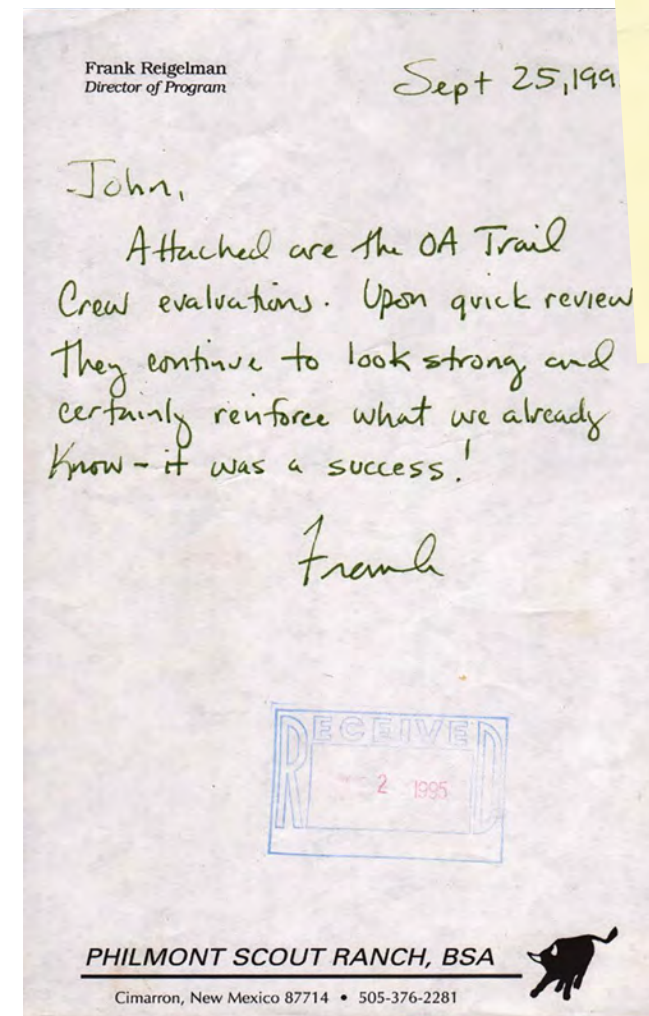 Frank Reigelman
Director of Program
Sept 25, 199
John,
Attached are the OA Trail
Crew evaluations. Upon quick review
they continue to look strong and
certainly reinforce what we already
know - it was a success!
Frank
RECEIVED
2 1995
PHILMONT SCOUT RANCH, BSA
Cimarron, New Mexico 87714 • 505-376-2281